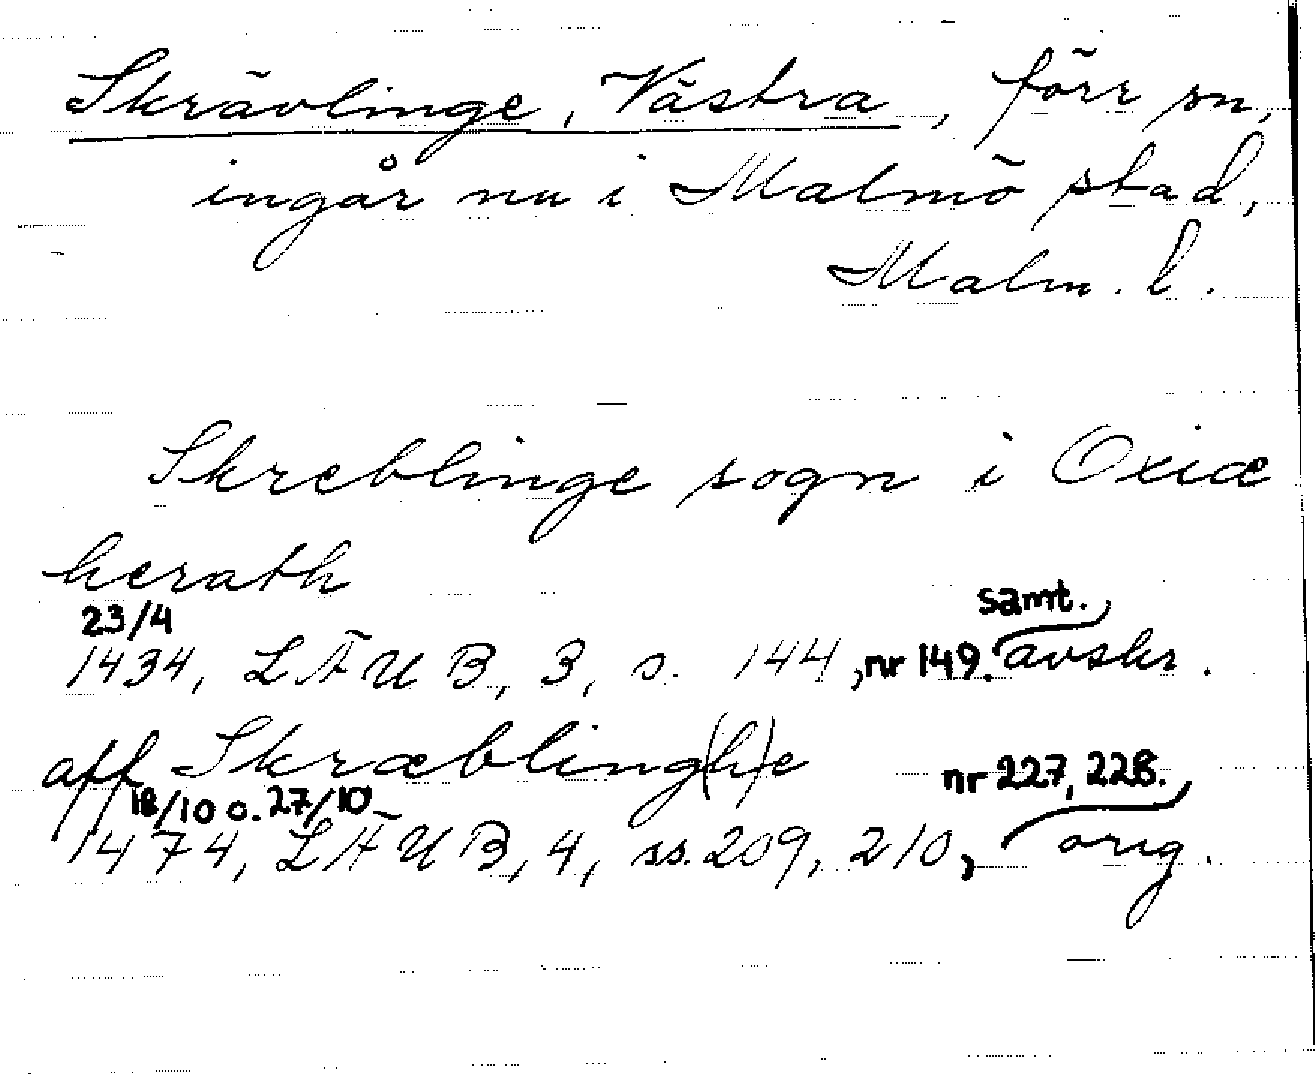 Skrävlinge, Västra, förr sn,
ingår nu i Malmö stad,
Malm. l.
Skreblinge sogn i Oxiæ
herath
23/4 samt.
1434, LÄUB, 3, s. 144, nr 149. avskr.
aff Skræbling(h)e nr 227, 228.
18/10 o. 27/10
1474, LÄUB, 4, ss. 209, 210, orig.